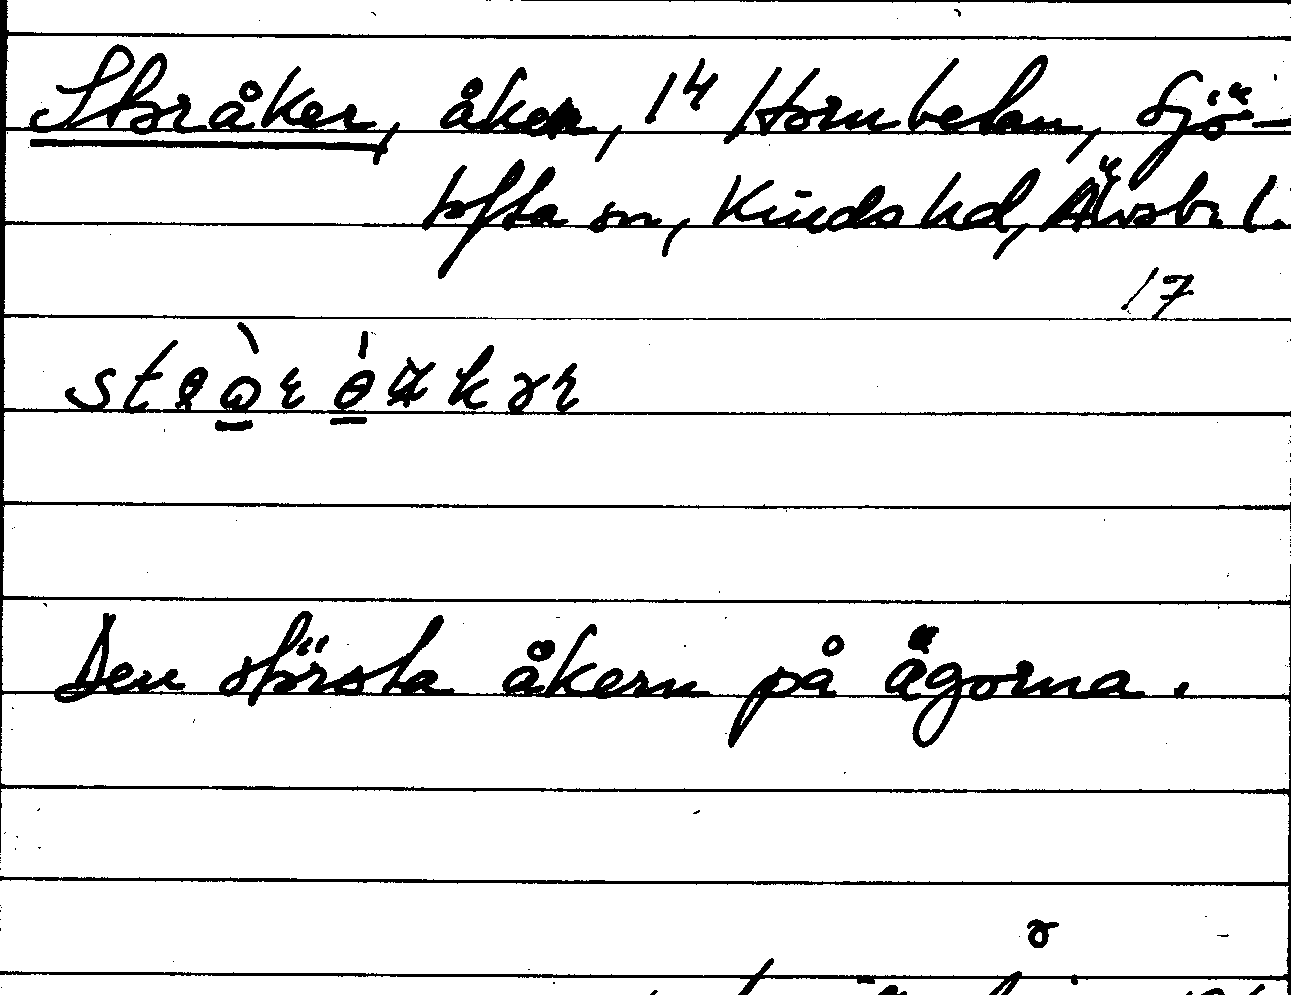 Storåker, åker, 1⁴ Hornbetan, Sjö-
tofta sn, Kinds hd, Älvsb. l.
17
Den största åkern på ägorna.